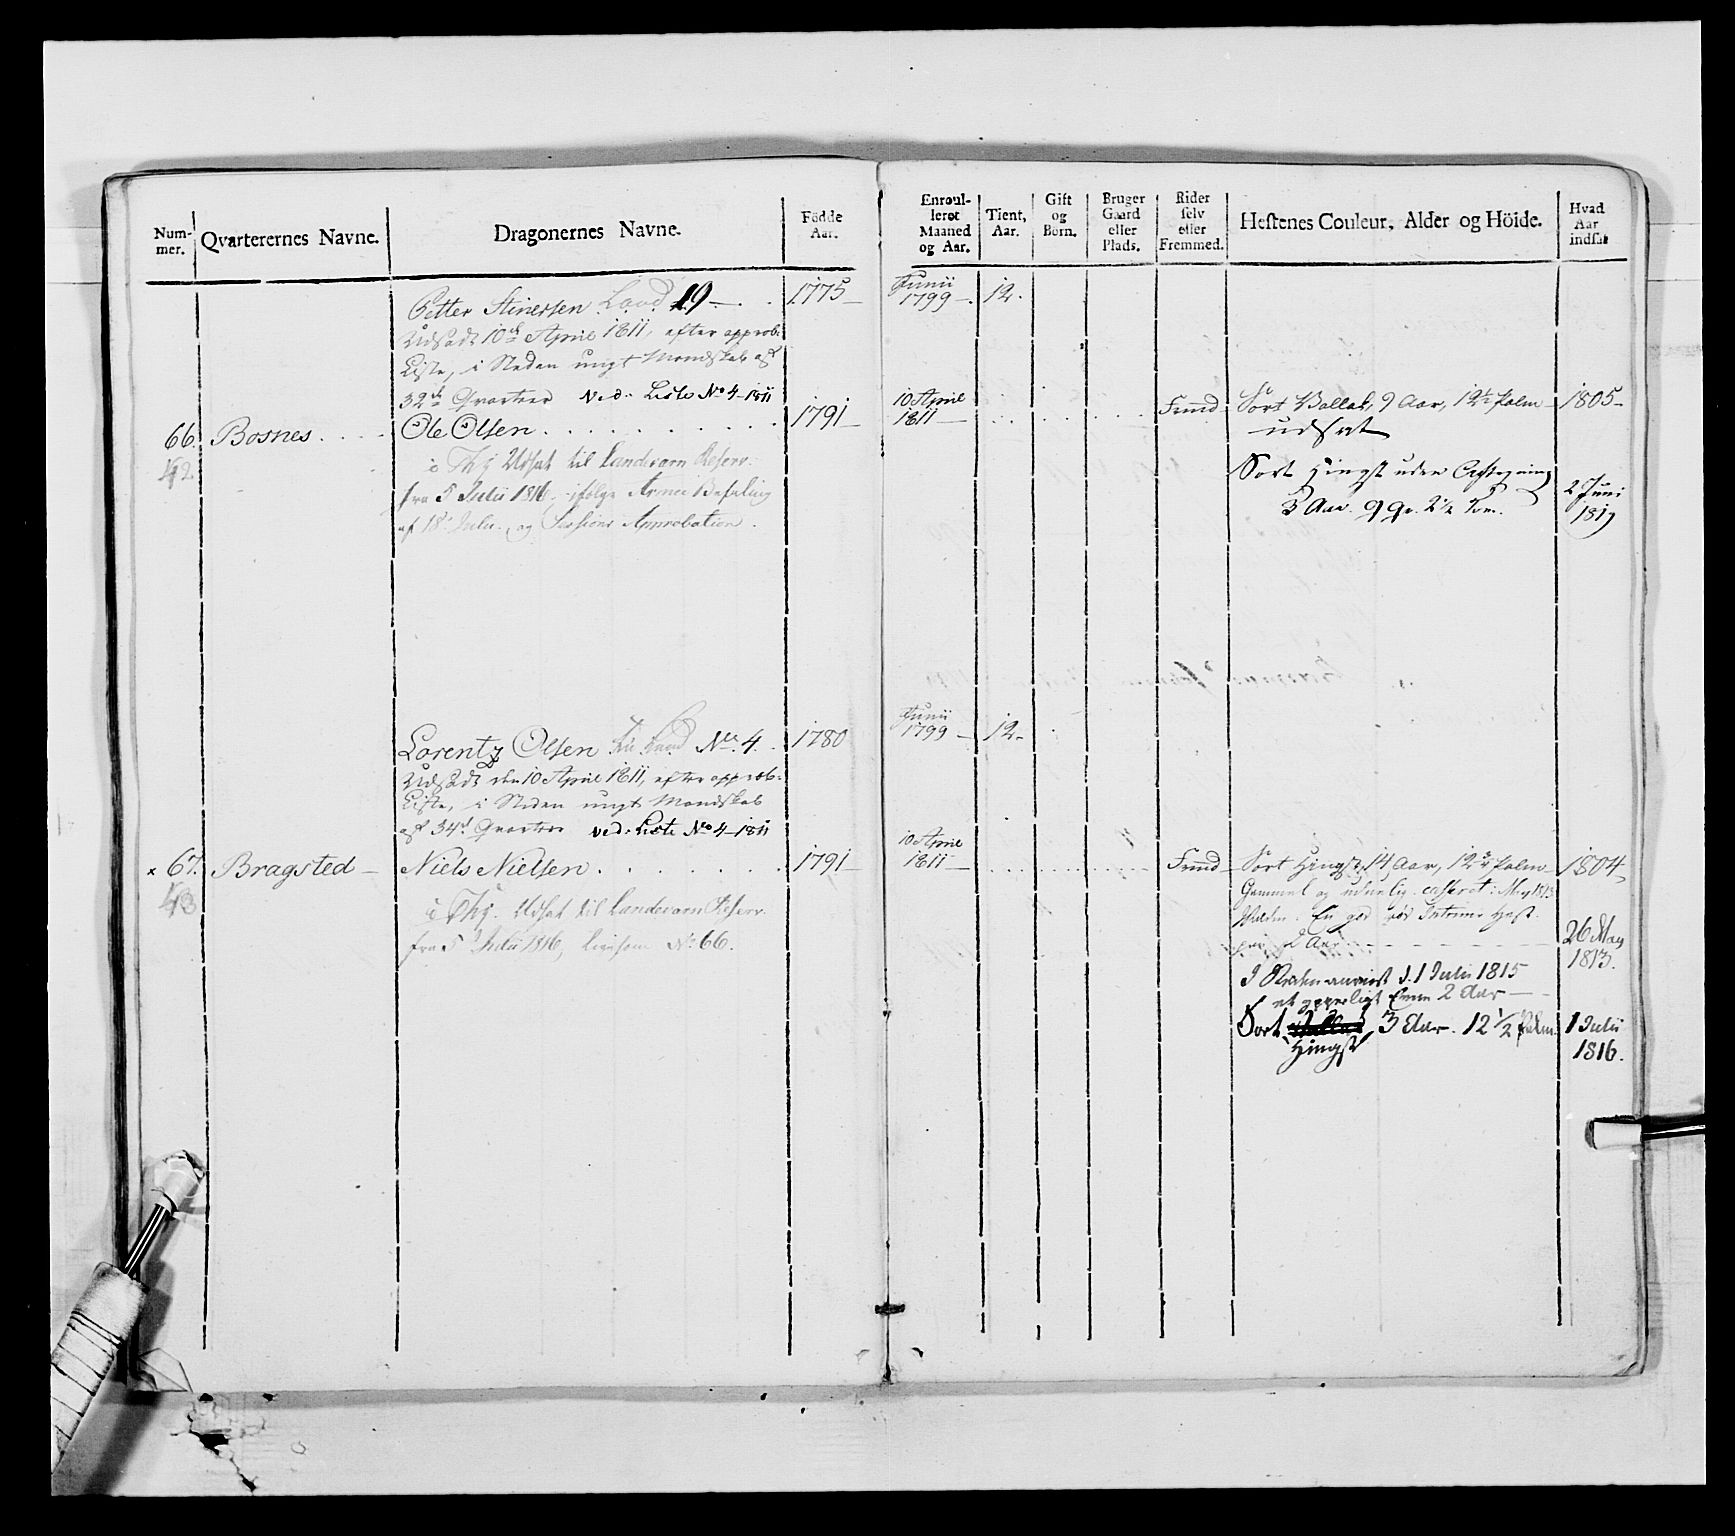 Num-
mer.
Qvarterernes Navne.
Dragonernes Navne.
Födde
Aar.
Petter Stinersen Land 19
1775
Udsadt 10de April 1811, efter approb:
Liste, i Steden ungt Mandskab af
32de Qvarteer Ved. Liste No 4 1811
66. Bosnes Ole Olsen 1791
42
Udsat til Landeværn Reserv:
fra 5 Julii 1816 ifølge Armee Befaling
af 18 Julii og Sessions Approbation.
Lorentz Olsen Land No. 4. 1780
Udsadt den 10 April 1811, efter approb:
Liste, i Steden ungt Mandskab
af 34de Qvarteer ved: Liste No 4 1811
x 67. Bragsted Niels Nielsen 1791
43
Udsat til Landeværn Reserv.
fra 5 Julii 1816, ligesom No 66.
Enroul-
leret
Maaned
og Aar.
Tient,
Aar.
Gift
og
Born.
Bruger
Gaard
eller
Plads.
Rider
selv
eller
Fremmed.
Hestenes Couleur, Alder og Höide.
Hvad
Aar
indsat
Junii
1799 12.
10 April
1811 Fremd Sort Vallak, 9 Aar, 12½ Palm 1805
udsat
Sort Hingst uden Aftegning
3 Aar. 9 Qr. 2½ Tom.
2 Juni
1819
Junii
1799 12
10 April
1811 Fremd Sort Hingst, 14 Aar, 12¾ Palm 1804
Gammel og uduelig casseret i May 1813
2 Aar
26 May
1813.
d. 1 Julii 1815
et 2 Aar
Sort 3 Aar. 12 1/2 Palm.
Hingst
1 Julii
1816.